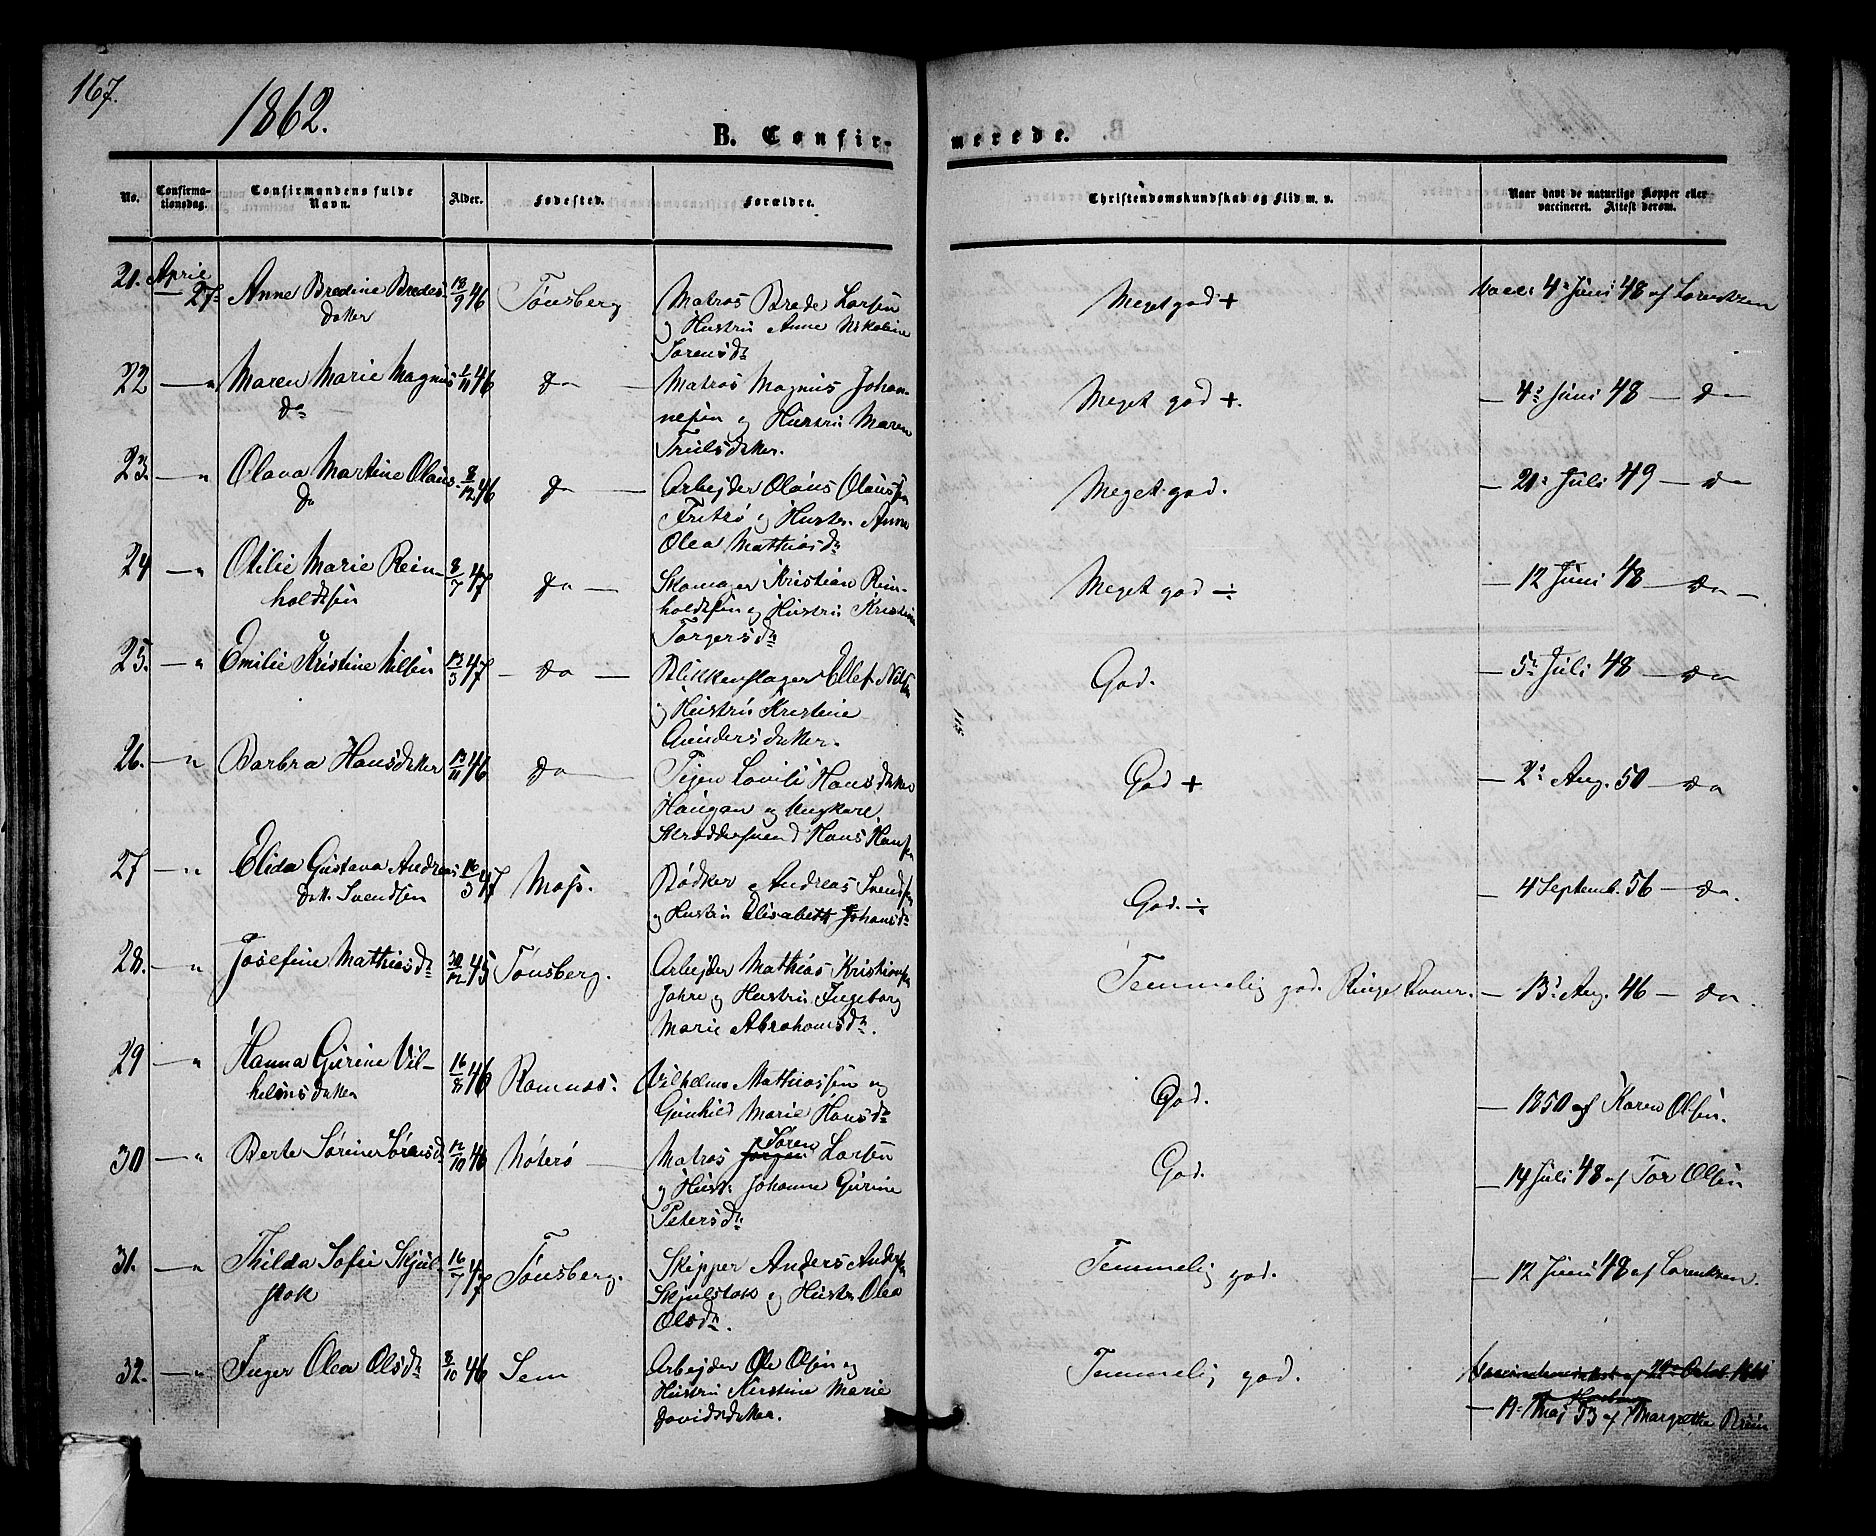 167.
1862.
B. Confir-
merede.
No.
Confirma-
tionsdag.
Confirmandens fulde
Navn.
Alder.
Fødested.
Forældre.
Christendomskundskab og Flid m. v.
Naar havt de naturlige Kopper eller
vaccineret. Attest derom.
21. April 27. Anne Bredine Bredes- 18/9 46 Tønsberg Matros Brede Larsen Meget god + Vacc. 4. Juni 48 af Lorentzen
datter og Hustru Anne Nikoline
Sørensdr
22 — " Maren Marie Magnus- 46 do — Matros Magnus Johan- Meget god +. — 4. Juni 48 — do
dr nesen og Hustru Maren
Trulsdatter.
23. — " Olava Martine Olaus- 8/12 46 do — Arbejder Olaus Olausen Meget god. — 21. Juli 49 — do
dr Fritsø og Hustr. Anne
Olea Mathiasdr
24 — " Otilie Marie Rein- 8/7 47 do — Skomager Kristian Rein- Meget god ÷ — 12 Juni 48 — do —.
holdtsen holdtsen og Hustru Kristine
Torgersdr
25. — " Emilie Kristine Nilsen 47 — do — Blikkenslager Ellef Nilsen God. — 5. Juli 48 — do
og Hustru Kristine
Gundersdatter.
26. — " Barbra Hansdatter 46 do — Pigen Lovise Hansdatter God + — 2. Aug. 50 — do
Haugan og Ungkarl
Skræddersvend Hans Hansen
27 — " Elida Gustava Andreas- 16/3 47 Moss. Bødker Andreas Svendsen God. ÷ — 4 Septemb. 56 — do.
datt. Svendsen og Hustru Elisabeth Johansdr
28. — " Josefine Mathiasdr 30/12 45 Tønsberg. Arbejder Mathias Kristiansen Temmelig god. Ringe Evner. — 13. Aug. 46 — do.
Jahre og Hustru Ingeborg
Marie Abrahamsdr.
29 — " Hanna Gurine Vil- 16/8 46 Ramnæs. Vilhelm Mathiassen og God. — 1850 af Karen Olsen.
helmsdatter Gunhild Marie Hansdr
30 — " Berte Sørine Sørensdr 12/10 46 Nøterø — Matros Jørgen Søren Larsen God. — 14 Juli 48 af Tor Olsen
og Hustr. Johanne Gurine
Petersdr.
31. — " Thilda Sofie Skjul- 16/7 47 Tønsberg. Skipper Anders Andersen Temmelig god. — 12 Juni 48 af Lorentzen.
stok Skjulstok og Hustr. Olea
Olsdr.
32. — " Inger Olea Olsdr 8/10 46 Sem Arbejder Ole Olsen og Temmelig god.
Hustru Kirstine Marie
Davidsdatter. — 19. Maj 53 af Margrethe